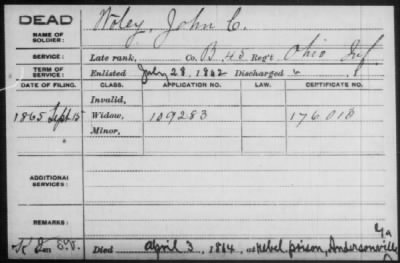 DEAD
NAME OF SOLDIER: Woley, John C.
SERVICE: Late rank, Co. B, 45 Reg't Ohio Inf.
TERM OF SERVICE: Enlisted July 28, 1862 Discharged
DATE OF FILING. CLASS. APPLICATION NO. LAW. CERTIFICATE NO.
Invalid,
1865 Sept 15 Widow, 109283 176018
Minor,
ADDITIONAL SERVICES:
REMARKS:
Ga
Died April 3, 1864, at rebel prison, Andersonville